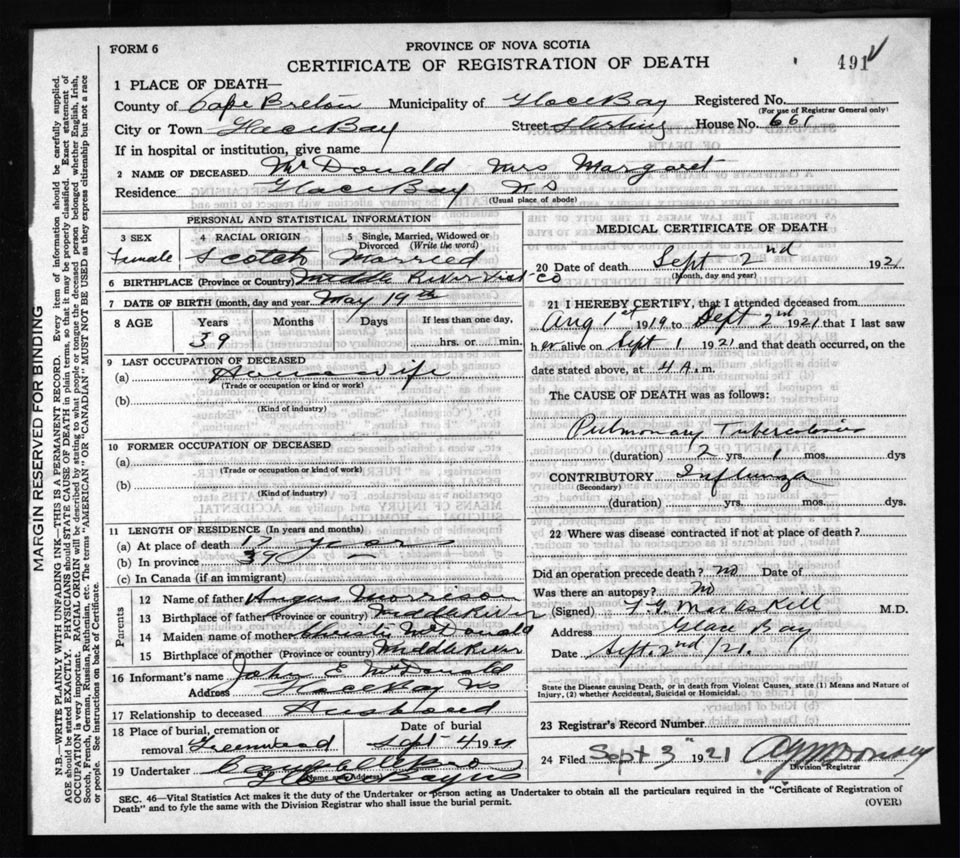 FORM 6
PROVINCE OF NOVA SCOTIA
CERTIFICATE OF REGISTRATION OF DEATH
491
1 PLACE OF DEATH—
County of Cape Breton Municipality of Glace Bay Registered No.
(For use of Registrar General only)
City or Town Glace Bay Street Sterling House No. 661
If in hospital or institution, give name
2 NAME OF DECEASED McDonald Mrs Margaret
Residence Glace Bay N S
(Usual place of abode)
PERSONAL AND STATISTICAL INFORMATION
3 SEX 4 RACIAL ORIGIN 5 Single, Married, Widowed or Divorced (Write the word)
Female Scotch Married
6 BIRTHPLACE (Province or Country) Middle River Vict Co
7 DATE OF BIRTH (month, day and year) May 19th
8 AGE Years Months Days If less than one day,
39 hrs. or min.
9 LAST OCCUPATION OF DECEASED
(a) Housewife
(Trade or occupation or kind of work)
(b)
(Kind of industry)
10 FORMER OCCUPATION OF DECEASED
(a)
(Trade or occupation or kind of work)
(b)
(Kind of industry)
11 LENGTH OF RESIDENCE (In years and months)
(a) At place of death 17 years
(b) In province 39
(c) In Canada (if an immigrant)
Parents
12 Name of father Angus Morrison
13 Birthplace of father (Province or country) Middle River
14 Maiden name of mother Christy McDonald
15 Birthplace of mother (Province or country) Middle River
16 Informant's name John E McDonald
Address Glace Bay NS
17 Relationship to deceased Husband
18 Place of burial, cremation or removal Greenwood Date of burial Sept 4 1921
19 Undertaker
(Name and Address)
MEDICAL CERTIFICATE OF DEATH
20 Date of death Sept 2nd 1921
(Month, day and year)
21 I HEREBY CERTIFY, that I attended deceased from
Aug 1st 1919 to Sept 2nd 1921 that I last saw
her alive on Sept 1 1921 and that death occurred, on the
date stated above, at 4 A.m.
The CAUSE OF DEATH was as follows:
Pulmonary Tuberculosis
(duration) 2 yrs. 1 mos. dys
CONTRIBUTORY Influenza
(Secondary)
(duration) yrs. mos. dys.
22 Where was disease contracted if not at place of death?
Did an operation precede death? No Date of
Was there an autopsy? No
(Signed) M.D.
Address Glace Bay
Date Sept. 2nd /21.
State the Disease causing Death, or in death from Violent Causes, state (1) Means and Nature of Injury, (2) whether Accidental, Suicidal or Homicidal.
23 Registrar's Record Number
24 Filed Sept 3 1921
Division Registrar
SEC. 46—Vital Statistics Act makes it the duty of the Undertaker or person acting as Undertaker to obtain all the particulars required in the "Certificate of Registration of
Death" and to fyle the same with the Division Registrar who shall issue the burial permit.
(OVER)
MARGIN RESERVED FOR BINDING
N.B.—WRITE PLAINLY WITH UNFADING INK—THIS IS A PERMANENT RECORD. Every item of information should be carefully supplied.
AGE should be stated EXACTLY. PHYSICIANS should STATE CAUSE OF DEATH in plain terms, so that it may be properly classified. Exact statement of
OCCUPATION is very important. RACIAL ORIGIN will be described by stating to what people or tongue the deceased person belonged whether English, Irish,
Scotch, French, German, Russian, Ruthenian, etc. The terms "AMERICAN" OR "CANADIAN" MUST NOT BE USED as they express citizenship but not a race
or people. See instructions on back of Certificate.